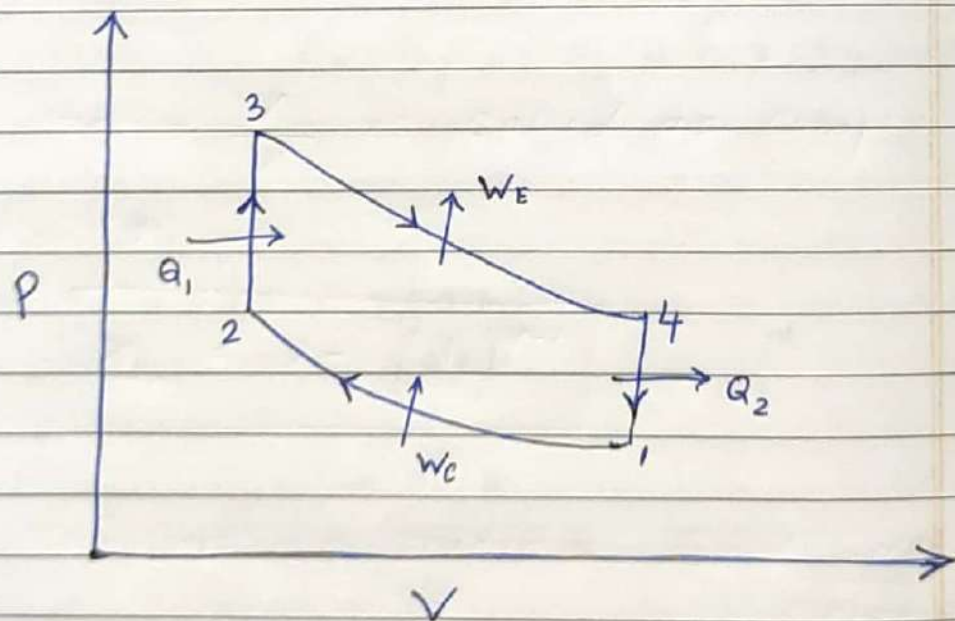 3
W_E
Q_1
P
2
4
Q_2
W_C
1
V